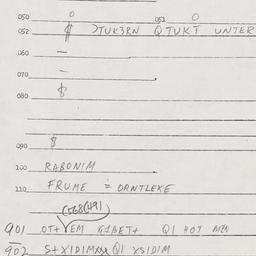 050 0 051 0
052 $ ƆTUK3RN QTUKT UNTER
060 —
070 —
080 $
090 $
100 RABONIM
110 FRUME = ORNTLEKE
901 OT+ VEM GIBET+ QI HOT MEN
902 S+XIDIM QI XSIDIM